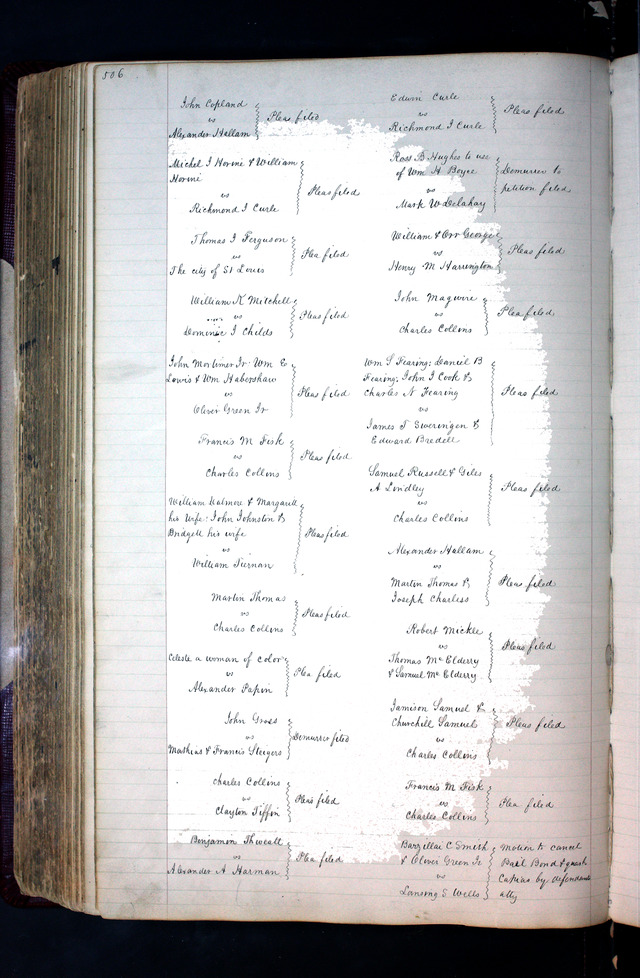 506
John Copland
vs
Alexander Hallam
Pleas filed
Michel J Horine & William
Horine
vs
Richmond J Curle
Pleas filed
Thomas J Ferguson
vs
The city of St Louis
Plea filed
William K Mitchell
vs
Dominic J Childs
Pleas filed
John Mortimer Jr Wm E
Lewis & Wm Habershaw
vs
Oliver Green Jr
Pleas filed
Francis M Fisk
vs
Charles Collins
Pleas filed
William Walmore & Margarett
his wife: John Johnston &
Bridgett his wife
vs
William Tiernan
Pleas filed
Martin Thomas
vs
Charles Collins
Pleas filed
Celeste a woman of color
vs
Alexander Papin
Plea filed
John Gross
vs
Mathias & Francis Steegers
Demurrer filed
Charles Collins
vs
Clayton Tiffin
Pleas filed
Benjamin Thweatt
vs
Alexander A Harman
Plea filed
Edwin Curle
vs
Richmond J Curle
Pleas filed
Ross B Hughes to use
of Wm H Boyce
vs
Mark W Delahay
Demurrer to
petition filed
William & Orr George
vs
Henry M Harrington
Pleas filed
John Maguire
vs
Charles Collins
Plea filed
Wm S Fearing: Daniel B
Fearing: John J Cook &
Charles N Fearing
vs
James T Sweringen &
Edward Bredell
Pleas filed
Samuel Russell & Giles
A Lindley
vs
Charles Collins
Pleas filed
Alexander Hallam
vs
Martin Thomas &
Joseph Charless
Pleas filed
Robert Mickle
vs
Thomas Mc Elderry
& Samuel Mc Elderry
Pleas filed
Jamison Samuel &
Churchill Samuel
vs
Charles Collins
Pleas filed
Francis M Fisk
vs
Charles Collins
Plea filed
Barzillai C Smith
& Oliver Green Jr
vs
Lansong S Wells
Motion to cancel
Bail Bond & quash
Capias by defendants
atty